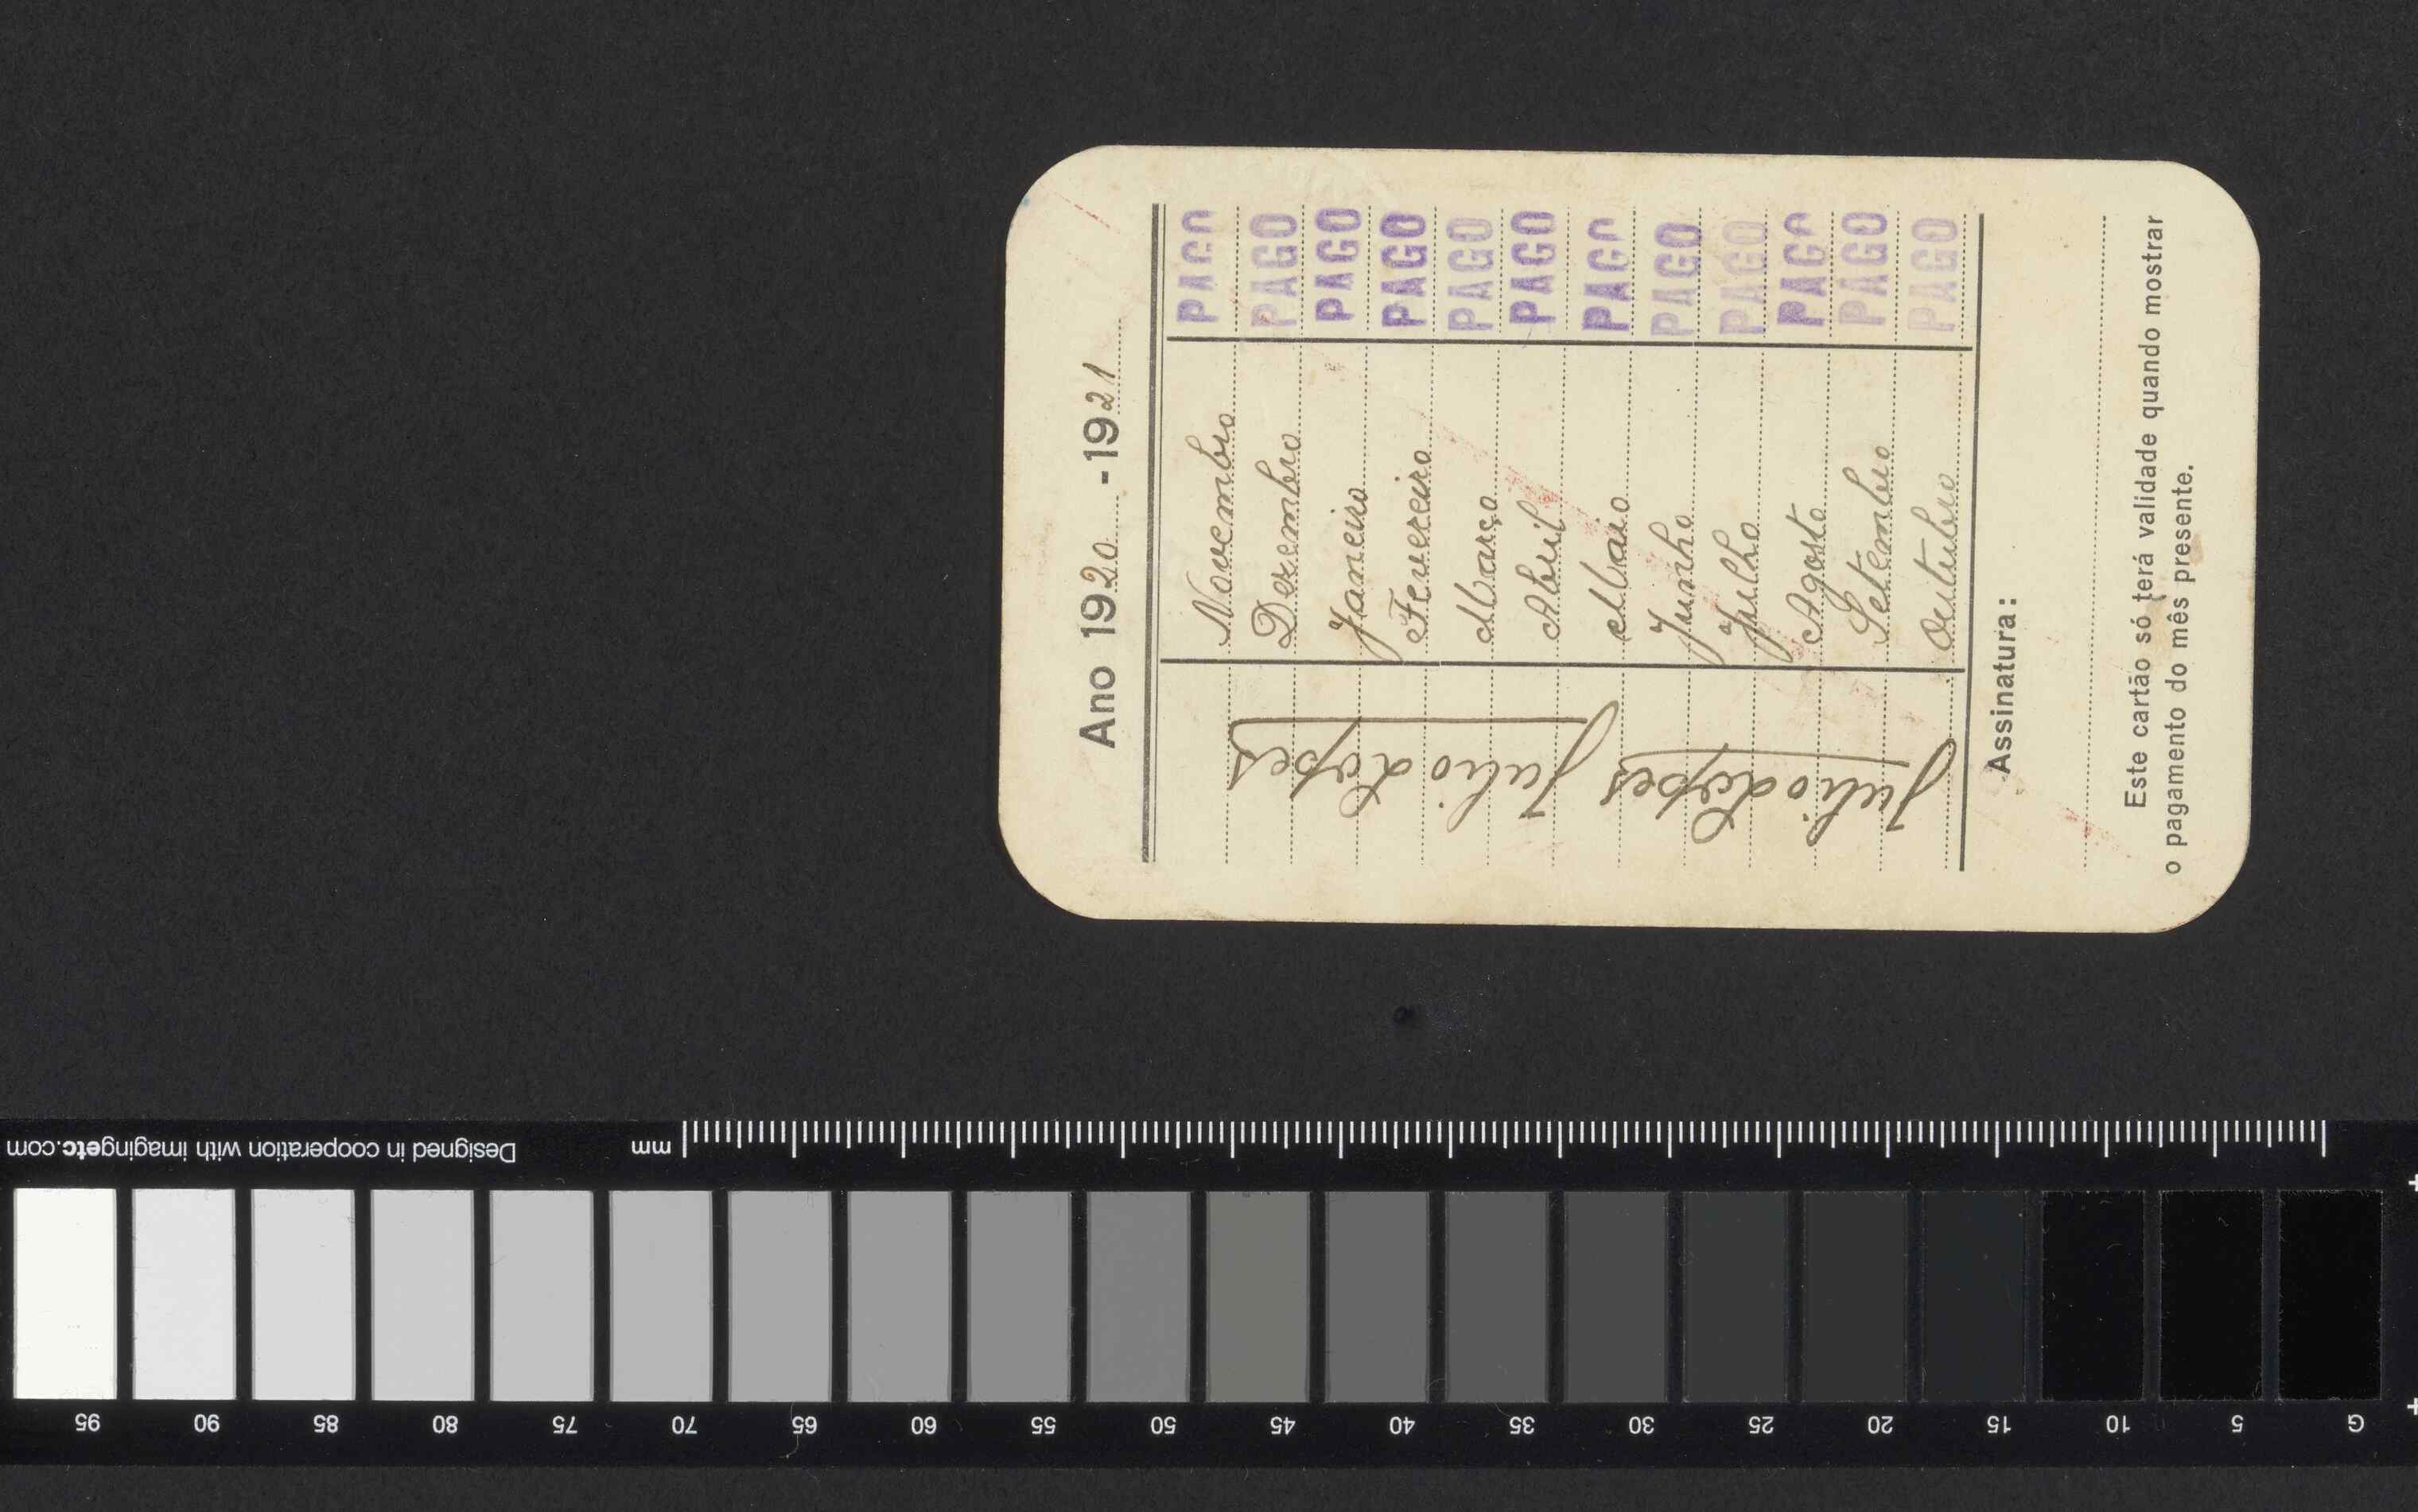 Ano 1920 - 1921
Novembro PAGO
Dezembro PAGO
Janeiro PAGO
Fevereiro PAGO
Março PAGO
Abril PAGO
Maio PAGO
Junho PAGO
Julho PAGO
Agosto PAGO
Setembro PAGO
Outubro PAGO
Julio Lopes
Julio Lopes
Assinatura:
Este cartão só terá validade quando mostrar
o pagamento do mês presente.
Designed in cooperation with imagingetc.com
mm
G 5 10 15 20 25 30 35 40 45 50 55 60 65 70 75 80 85 90 95